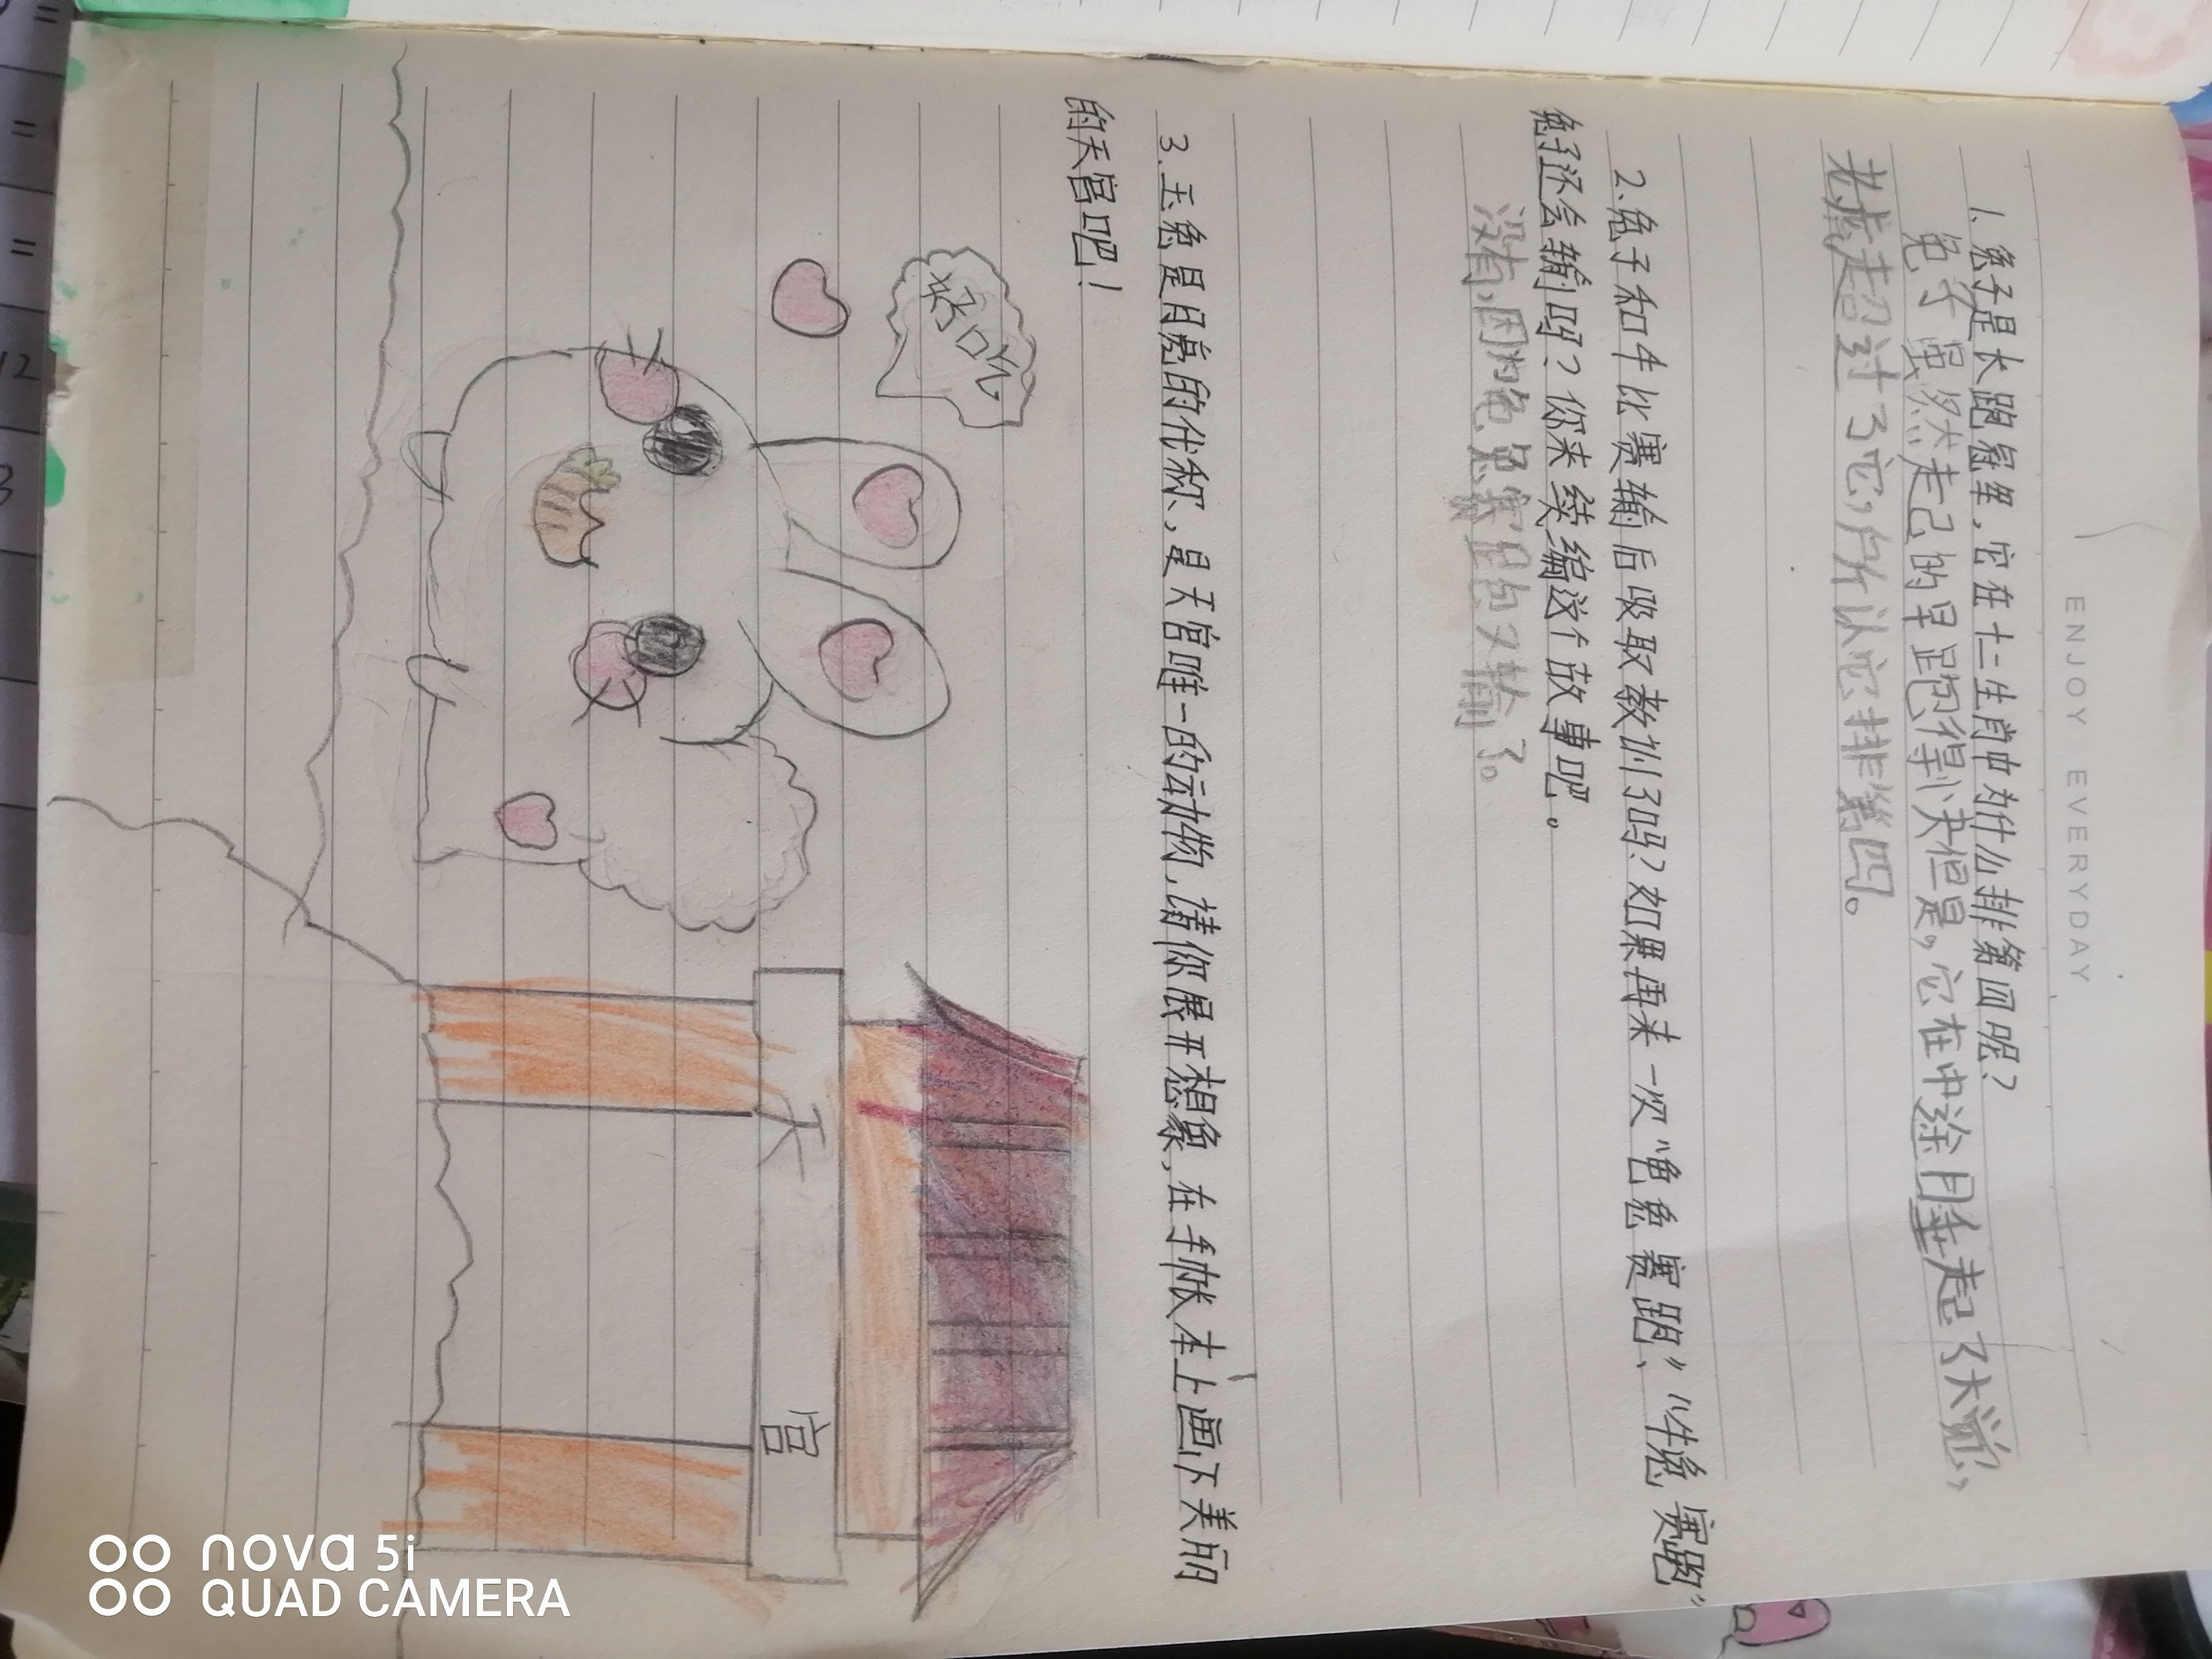 ENJOY EVERYDAY
1. 兔子是长跑冠军，它在十二生肖中为什么排第四呢？
兔子虽然起的早跑得快但是，它在中途睡起了大觉，
老虎超过了它，所以它排第四。
2.兔子和牛比赛输后吸取教训了吗？如果再来一次“龟兔赛跑”、“牛兔赛跑”
兔子还会输吗？你来续编这个故事吧。
没有，因为兔
又输了。
3.玉兔是月亮的代称，是天宫唯一的动物，请你展开想象，在手帐本上画下美丽
的天宫吧！
好吃
天 宫
nova 5i
QUAD CAMERA